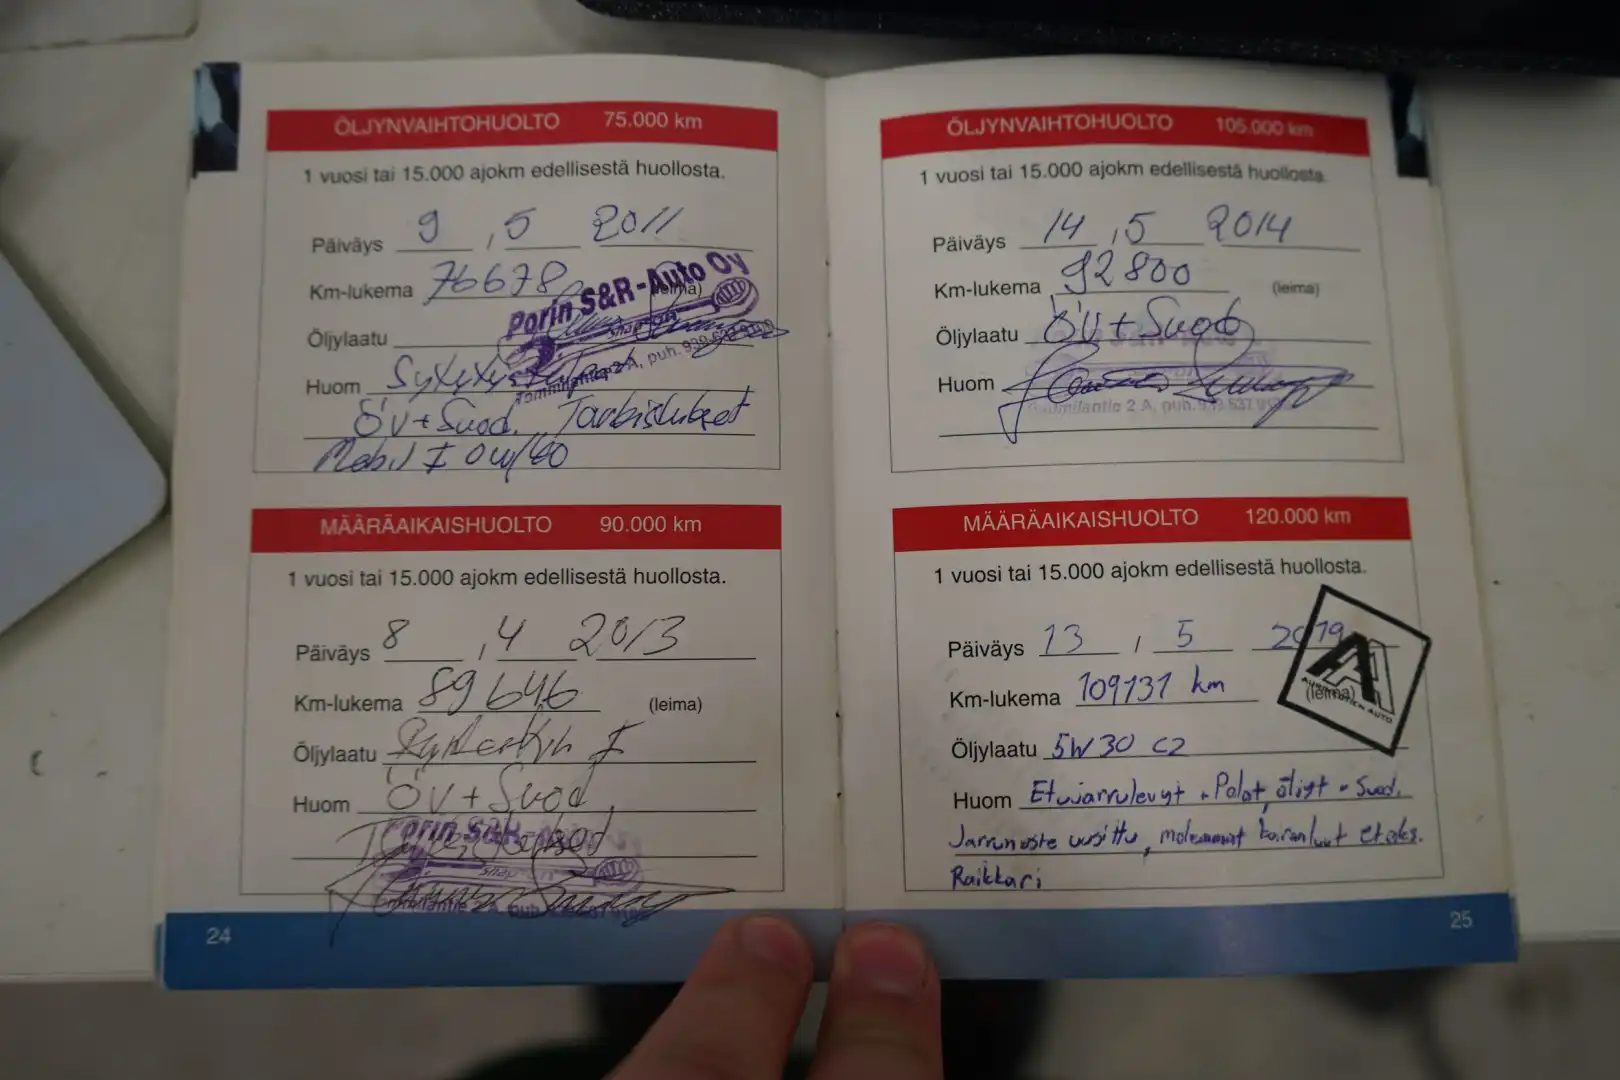 ÖLJYNVAIHTOHUOLTO 75.000 km
1 vuosi tai 15.000 ajokm edellisestä huollosta.
Päiväys 9 , 5 2011
Km-lukema 76678 (leima)
Porin S&R-Auto Oy
Öljylaatu
puh. 939 637
Huom
Öv + Suod.
Mobil 1 0W/40
MÄÄRÄAIKAISHUOLTO 90.000 km
1 vuosi tai 15.000 ajokm edellisestä huollosta.
Päiväys 8 , 4 2013
Km-lukema 89646 (leima)
Öljylaatu
Huom Öv + Suod
Porin S&R-
24
ÖLJYNVAIHTOHUOLTO 105.000 km
1 vuosi tai 15.000 ajokm edellisestä huollosta.
Päiväys 14 , 5 2014
Km-lukema 92800 (leima)
Öljylaatu Öv + Suod
Huom
2 A, puh. 939 637
MÄÄRÄAIKAISHUOLTO 120.000 km
1 vuosi tai 15.000 ajokm edellisestä huollosta.
Päiväys 13 , 5 2019
Km-lukema 109131 km (leima)
Öljylaatu 5W30 C2
Huom Etujarrulevyt + Palat, öljyt + Suod.
Jarruneste uusittu, molemmat etales.
Raikkari
25